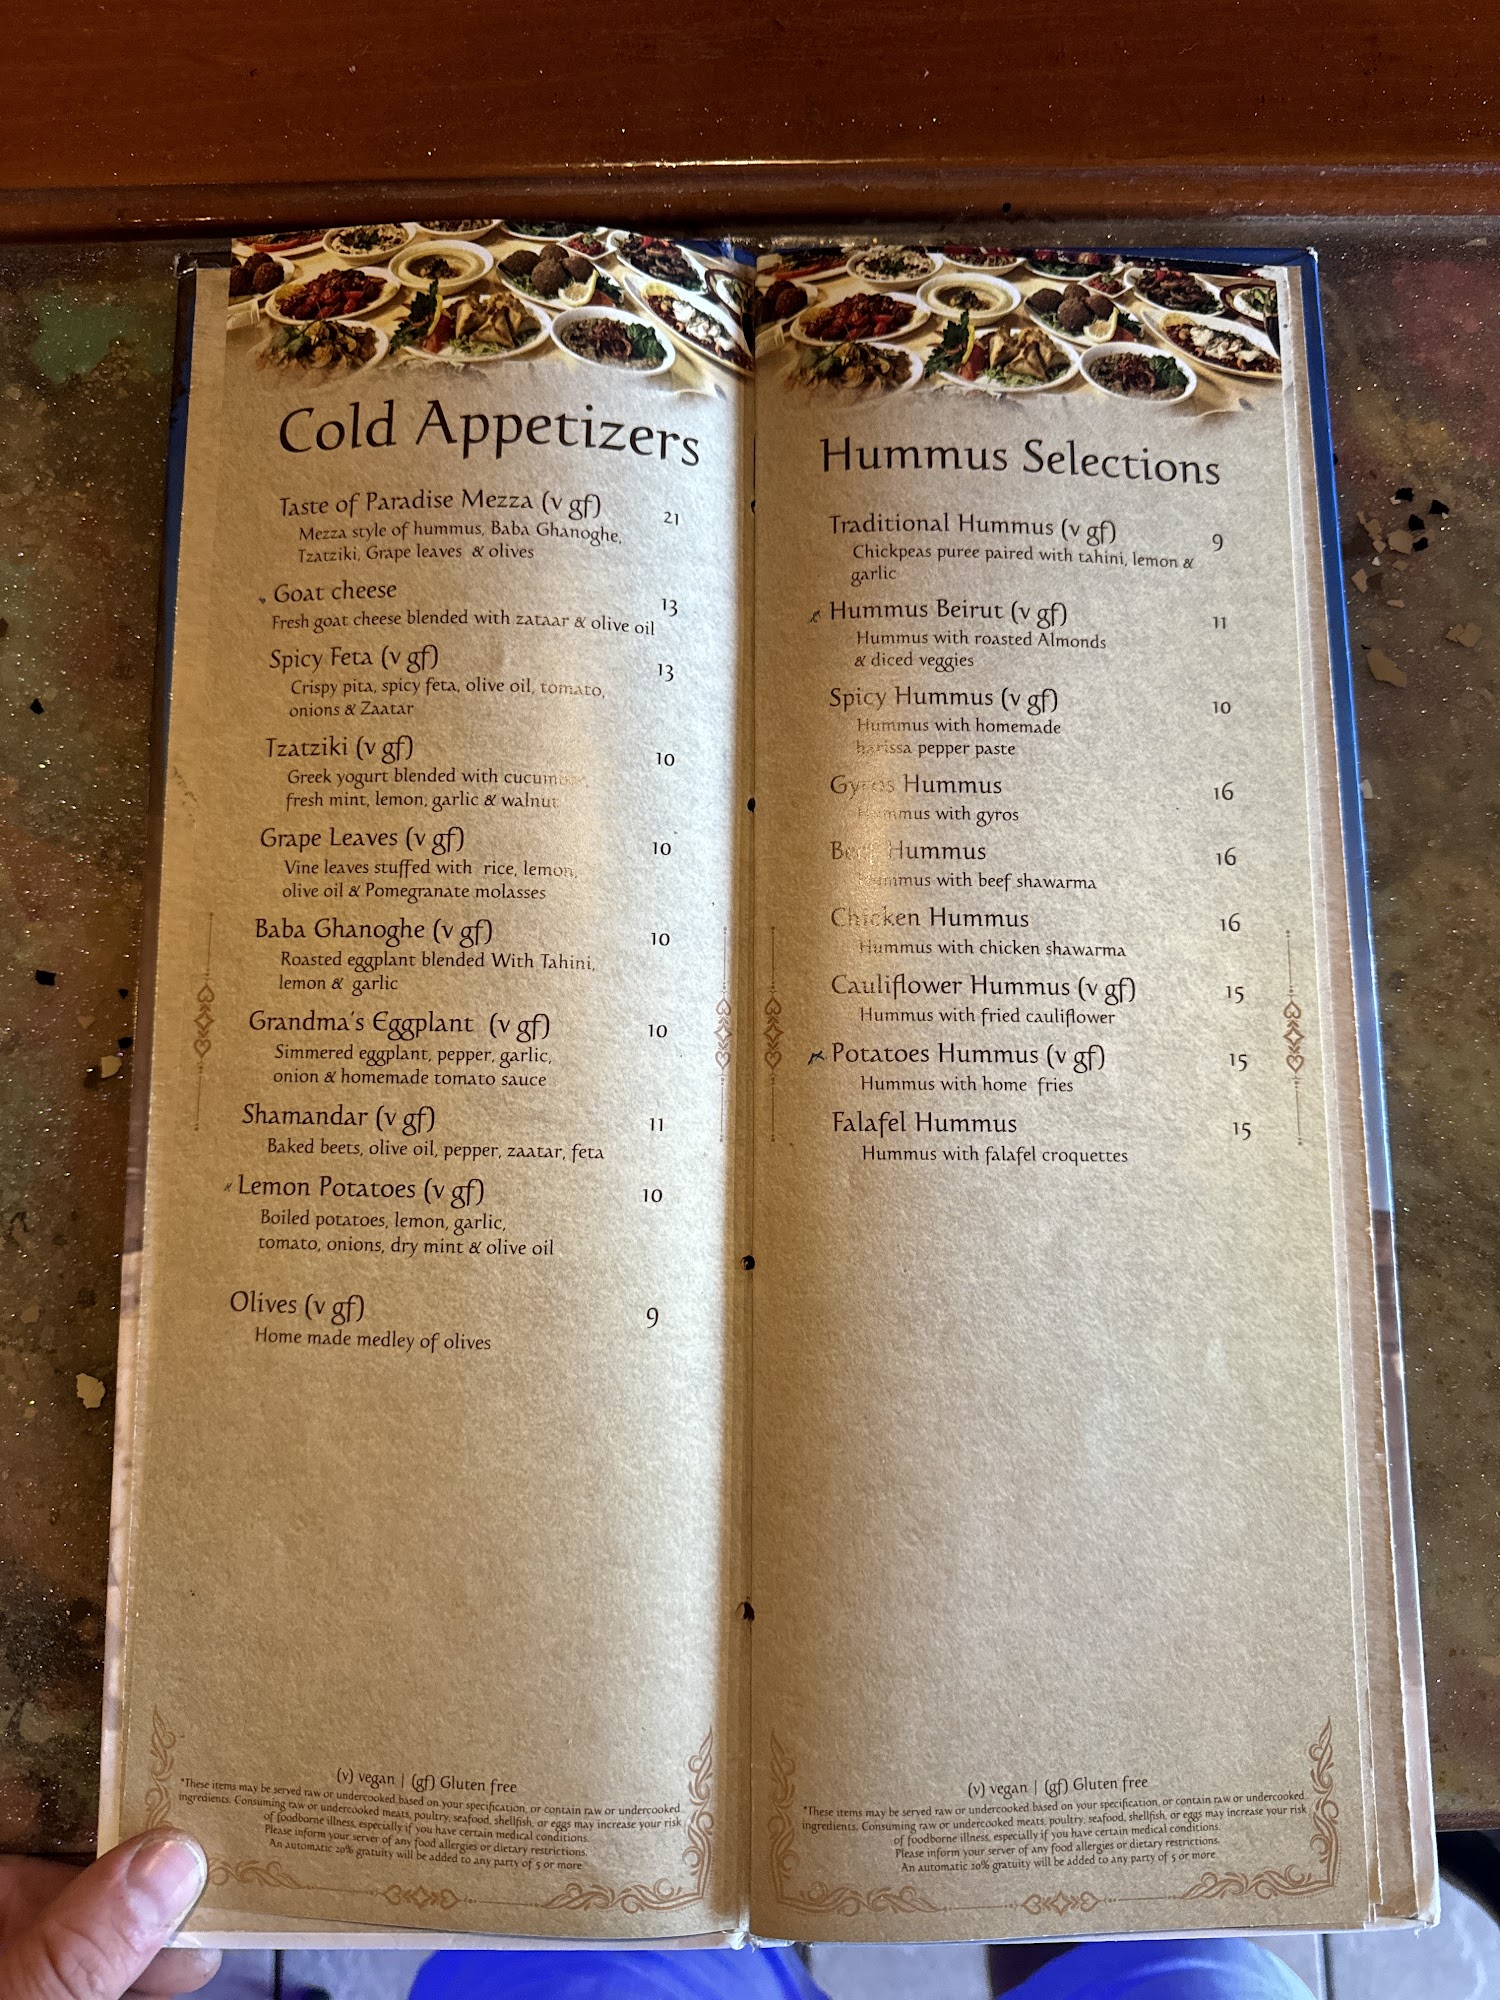 Cold Appetizers
Taste of Paradise Mezza (v gf) 21
Mezza style of hummus, Baba Ghanoghe,
Tzatziki, Grape leaves & olives
Goat cheese 13
Fresh goat cheese blended with zataar & olive oil
Spicy Feta (v gf) 13
Crispy pita, spicy feta, olive oil, tomato,
onions & Zaatar
Tzatziki (v gf) 10
Greek yogurt blended with cucumber,
fresh mint, lemon, garlic & walnut
Grape Leaves (v gf) 10
Vine leaves stuffed with rice, lemon,
olive oil & Pomegranate molasses
Baba Ghanoghe (v gf) 10
Roasted eggplant blended With Tahini,
lemon & garlic
Grandma's Eggplant (v gf) 10
Simmered eggplant, pepper, garlic,
onion & homemade tomato sauce
Shamandar (v gf) 11
Baked beets, olive oil, pepper, zaatar, feta
Lemon Potatoes (v gf) 10
Boiled potatoes, lemon, garlic,
tomato, onions, dry mint & olive oil
Olives (v gf) 9
Home made medley of olives
(v) vegan | (gf) Gluten free
*These items may be served raw or undercooked based on your specification, or contain raw or undercooked
ingredients. Consuming raw or undercooked meats, poultry, seafood, shellfish, or eggs may increase your risk
of foodborne illness, especially if you have certain medical conditions.
Please inform your server of any food allergies or dietary restrictions.
An automatic 20% gratuity will be added to any party of 5 or more
Hummus Selections
Traditional Hummus (v gf) 9
Chickpeas puree paired with tahini, lemon &
garlic
Hummus Beirut (v gf) 11
Hummus with roasted Almonds
& diced veggies
Spicy Hummus (v gf) 10
Hummus with homemade
harissa pepper paste
Gyros Hummus 16
Hummus with gyros
Beef Hummus 16
Hummus with beef shawarma
Chicken Hummus 16
Hummus with chicken shawarma
Cauliflower Hummus (v gf) 15
Hummus with fried cauliflower
Potatoes Hummus (v gf) 15
Hummus with home fries
Falafel Hummus 15
Hummus with falafel croquettes
(v) vegan | (gf) Gluten free
*These items may be served raw or undercooked based on your specification, or contain raw or undercooked
ingredients. Consuming raw or undercooked meats, poultry, seafood, shellfish, or eggs may increase your risk
of foodborne illness, especially if you have certain medical conditions.
Please inform your server of any food allergies or dietary restrictions.
An automatic 20% gratuity will be added to any party of 5 or more